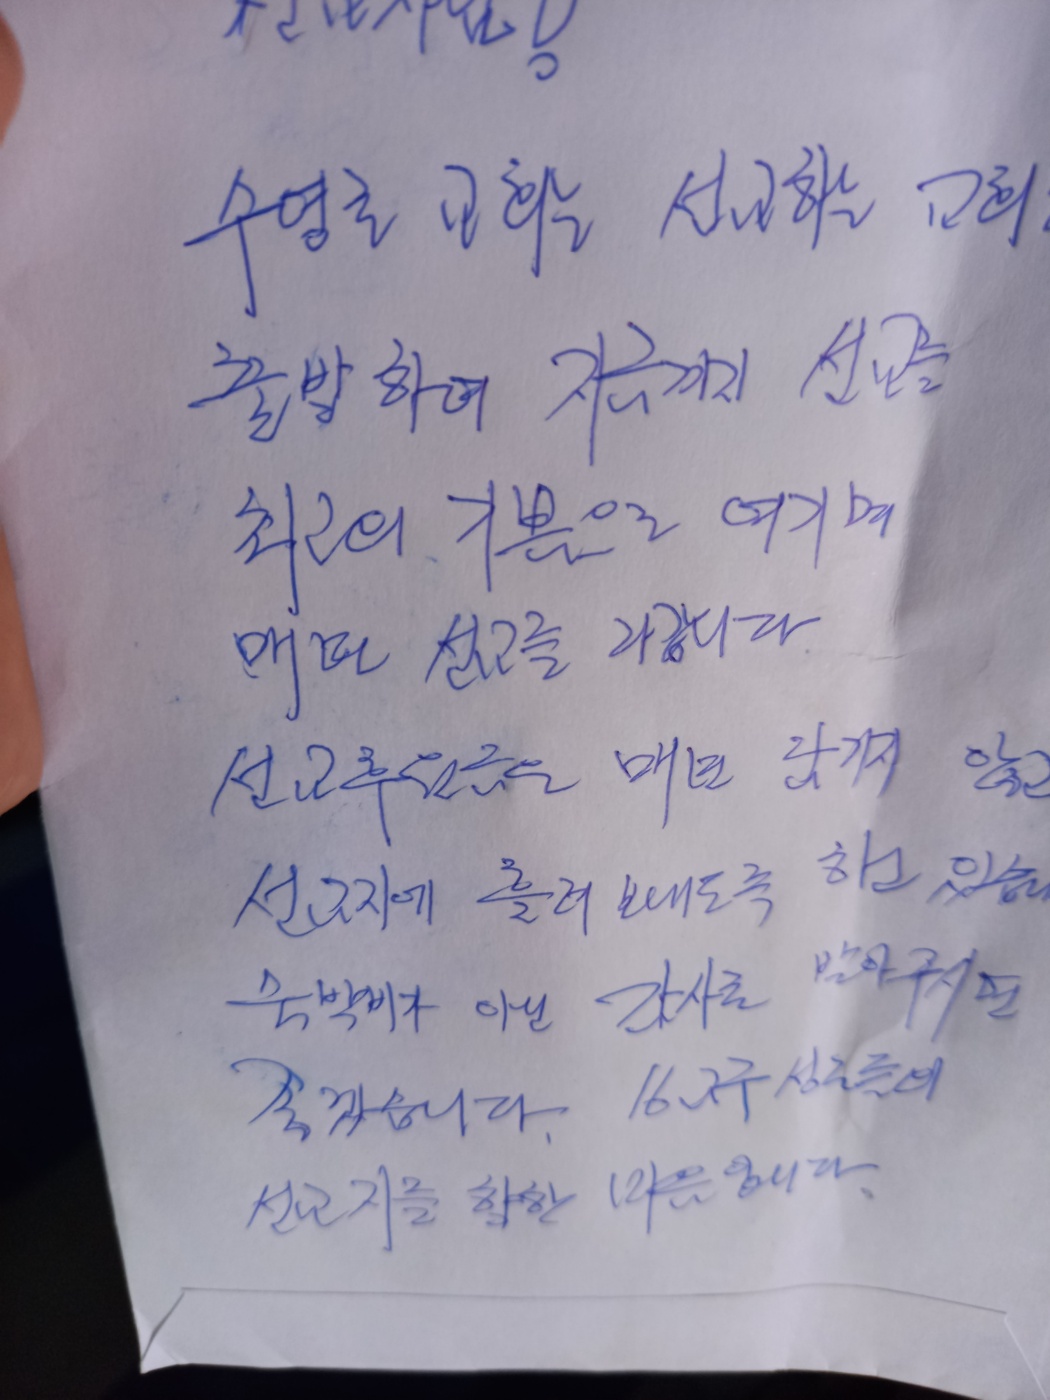 선교사님!
수영로 교회는 선교하는 교회
출발하여 지금까지 선교를
최고의 기쁨으로 여기며
매년 선교를 나갑니다
선교후원금은 매년 남기지 않고
선교지에 흘려 보내도록 하고 있습니
숙박비가 아닌 감사로 받아주시면
좋겠습니다. 16교구 성도들의
선교지를 향한 마음입니다.